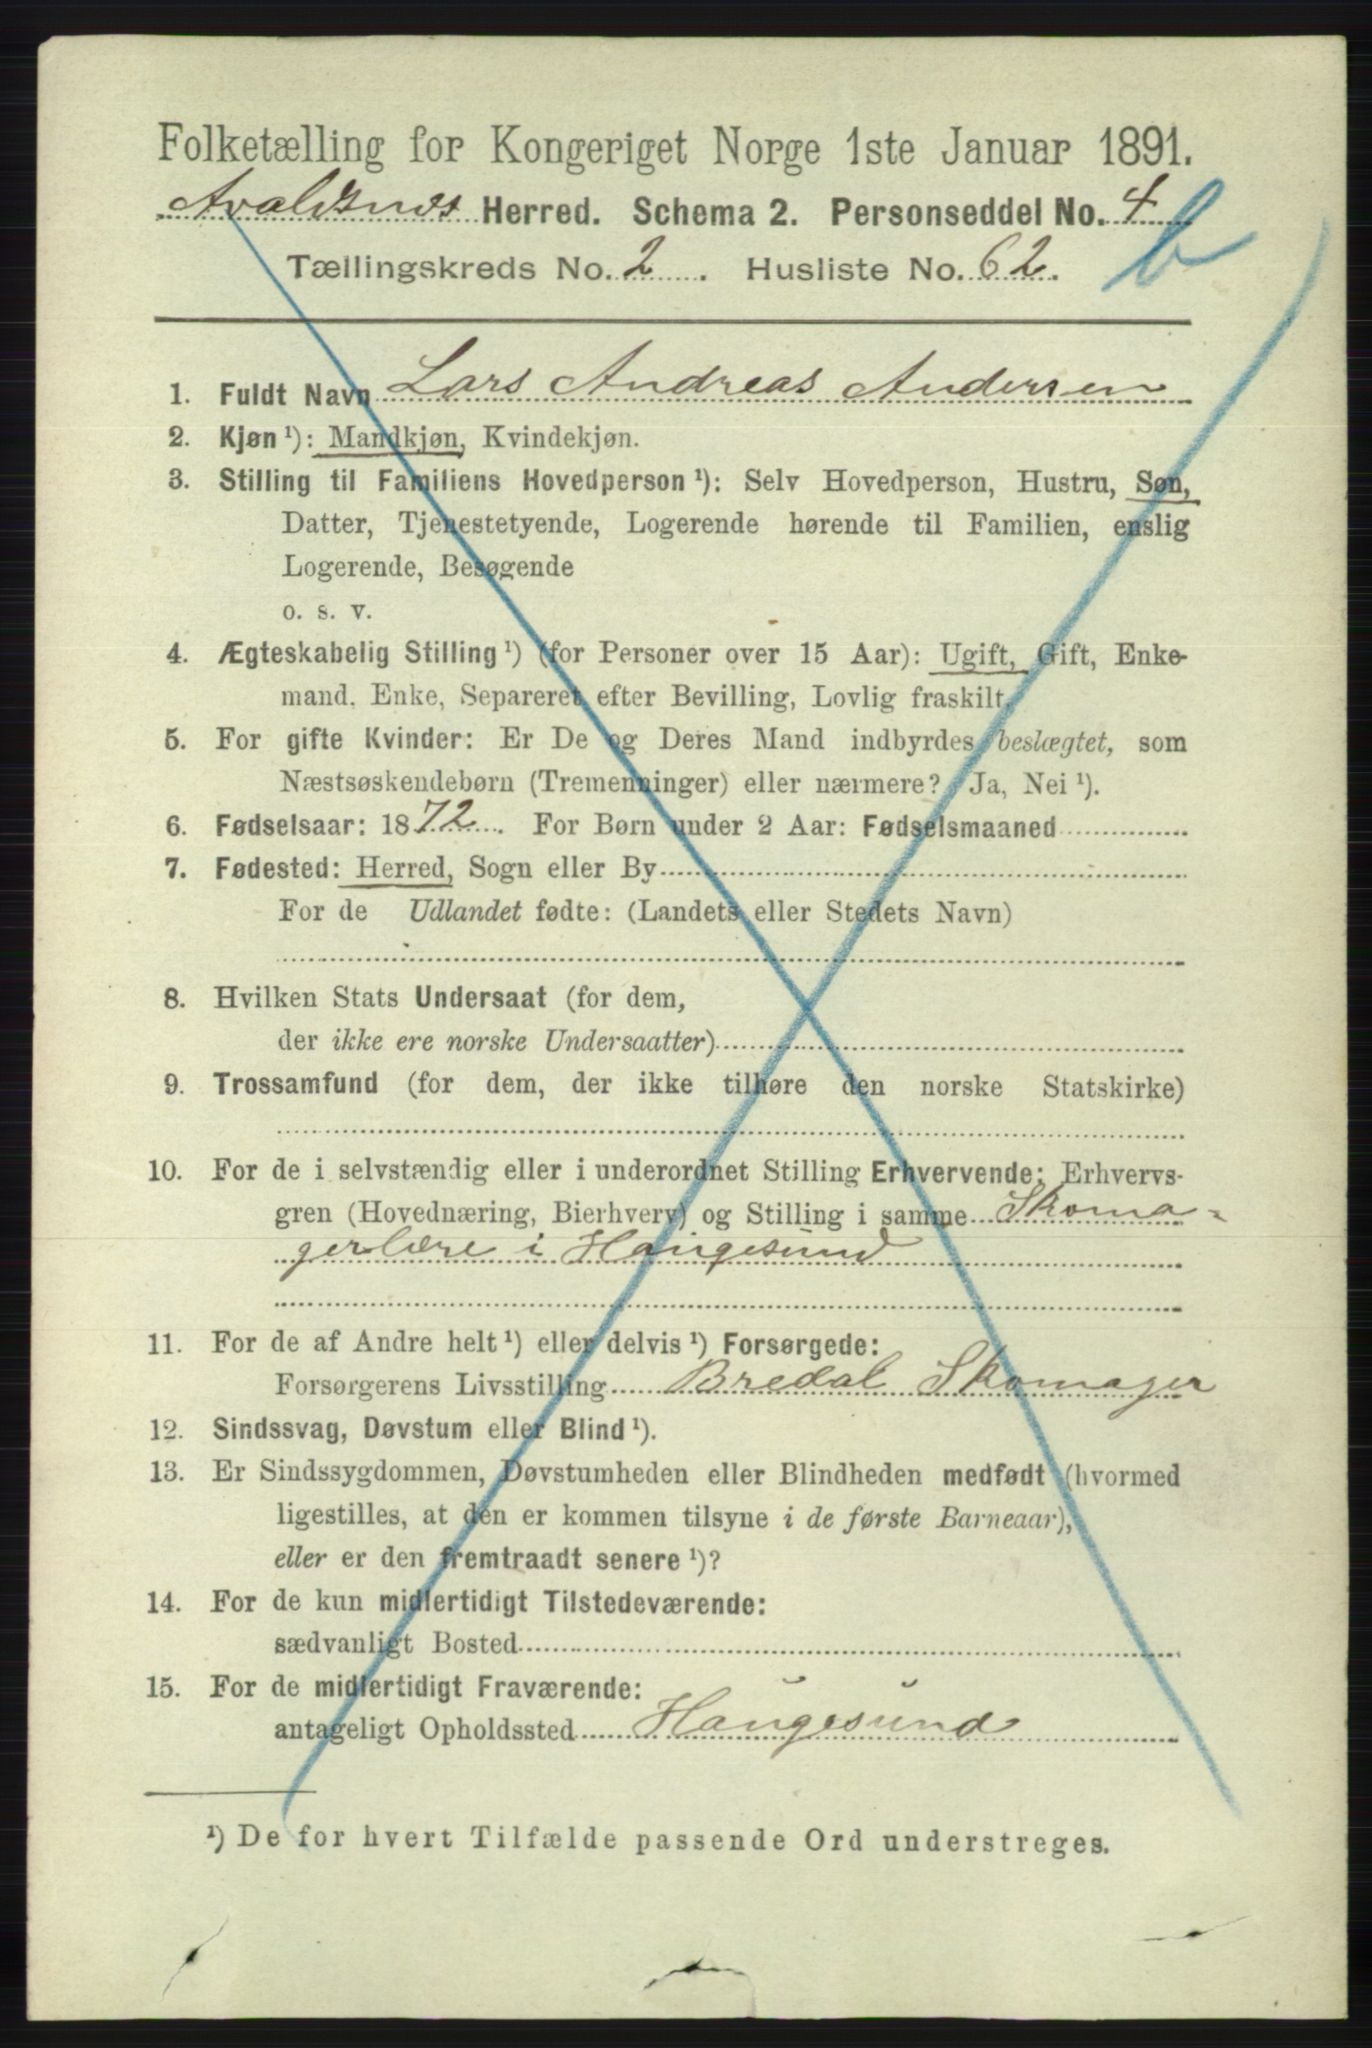 Folketælling for Kongeriget Norge 1ste Januar 1891.
Avaldsnes Herred. Schema 2. Personseddel No. 4
b
Tællingskreds No. 2. Husliste No. 62.
1. Fuldt Navn Lars Andreas Andersen
2. Kjøn ¹): Mandkjøn, Kvindekjøn.
3. Stilling til Familiens Hovedperson ¹): Selv Hovedperson, Hustru, Søn,
Datter, Tjenestetyende, Logerende hørende til Familien, enslig
Logerende, Besøgende
o. s. v.
4. Ægteskabelig Stilling ¹) (for Personer over 15 Aar): Ugift, Gift, Enke-
mand, Enke, Separeret efter Bevilling, Lovlig fraskilt.
5. For gifte Kvinder: Er De og Deres Mand indbyrdes beslægtet, som
Næstsøskendebørn (Tremenninger) eller nærmere? Ja, Nei ¹).
6. Fødselsaar: 1872. For Børn under 2 Aar: Fødselsmaaned
7. Fødested: Herred, Sogn eller By
For de Udlandet fødte: (Landets eller Stedets Navn)
8. Hvilken Stats Undersaat (for dem,
der ikke ere norske Undersaatter)
9. Trossamfund (for dem, der ikke tilhøre den norske Statskirke)
10. For de i selvstændig eller i underordnet Stilling Erhvervende: Erhvervs-
gren (Hovednæring, Bierhverv) og Stilling i samme Skoma-
gerlære i Haugesund
11. For de af Andre helt ¹) eller delvis ¹) Forsørgede:
Forsørgerens Livsstilling Bredal Skomager
12. Sindssvag, Døvstum eller Blind ¹).
13. Er Sindssygdommen, Døvstumheden eller Blindheden medfødt (hvormed
ligestilles, at den er kommen tilsyne i de første Barneaar),
eller er den fremtraadt senere ¹)?
14. For de kun midlertidigt Tilstedeværende:
sædvanligt Bosted
15. For de midlertidigt Fraværende:
antageligt Opholdssted Haugesund
¹) De for hvert Tilfælde passende Ord understreges.